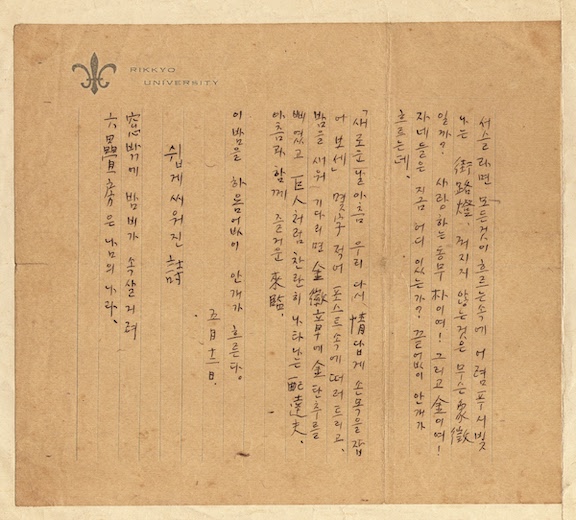 RIKKYO
UNIVERSITY
서슬라면 모든것이 흐르는속에 어렴푸시빛
나는 街路燈, 꺼지지 않는것은 무슨 象徵
일까? 사랑하는동무 朴이여! 그리고 金이여!
자네들은 지금 어디 있는가? 끝없이 안개가
흐르는데.
「새로운날아츰 우리 다시 情답게 손목을 잡
어 보세」 몇字 적어 포스트속에 떠러트리고,
밤을 새워 기다리면 金徽章에 金단추를
삐였고 巨人처럼 찬란히 나타나는 配達夫,
아츰과 함께 즐거운 來臨,
이밤을 하욤없이 안개가 흐른다.
五月十二日.
쉽게 씨워진 詩
窓밖에 밤비가 속살거려
六疊房은 남의 나라,